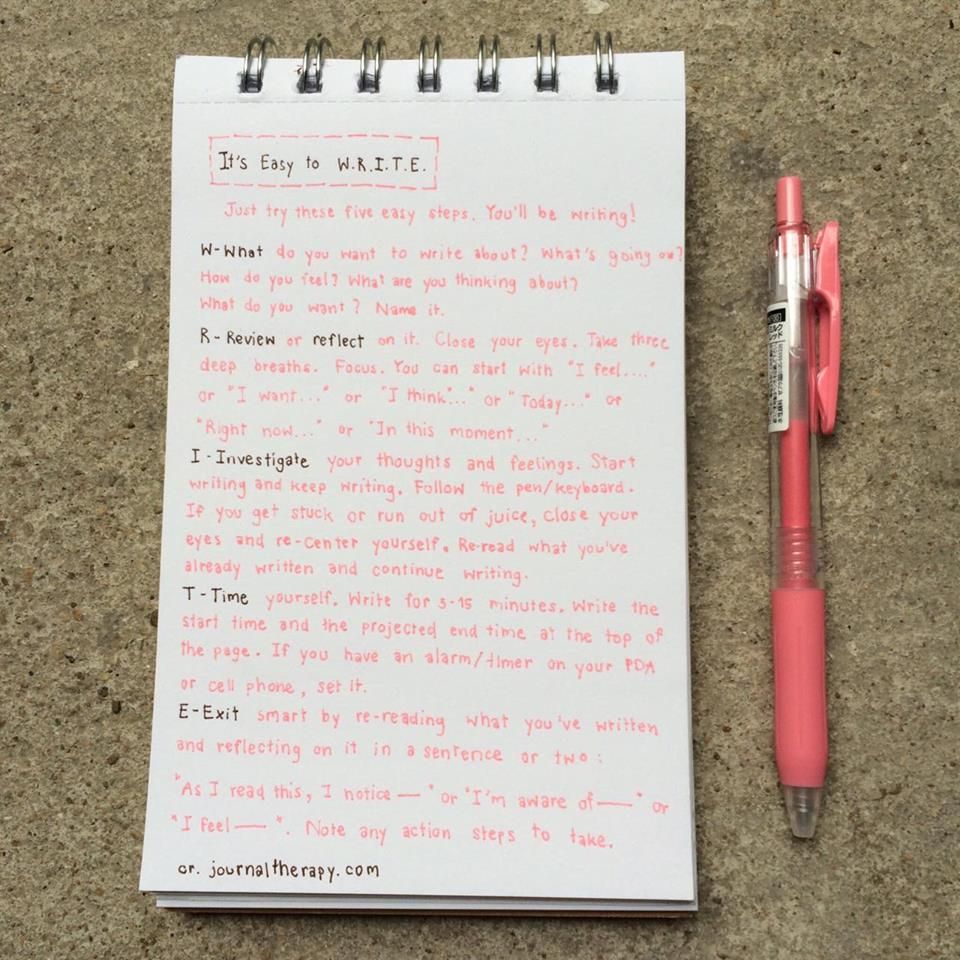 It's Easy to W.R.I.T.E.
Just try these five easy steps. You'll be writing!
W-What do you want to write about? What's going on?
How do you feel? What are you thinking about?
What do you want? Name it.
R-Review or reflect on it. Close your eyes. Take three
deep breaths. Focus. You can start with "I feel...."
or "I want..." or "I think..." or "Today..." or
"Right now..." or "In this moment..."
I-Investigate your thoughts and feelings. Start
writing and keep writing. Follow the pen/keyboard.
If you get stuck or run out of juice, close your
eyes and re-center yourself. Re-read what you've
already written and continue writing.
T-Time yourself. Write for 5-15 minutes. Write the
start time and the projected end time at the top of
the page. If you have an alarm/timer on your PDA
or cell phone, set it.
E-Exit smart by re-reading what you've written
and reflecting on it in a sentence or two:
"As I read this, I notice — " or "I'm aware of — " or
"I feel — ". Note any action steps to take.
cr. journaltherapy.com
ミルク
レッド